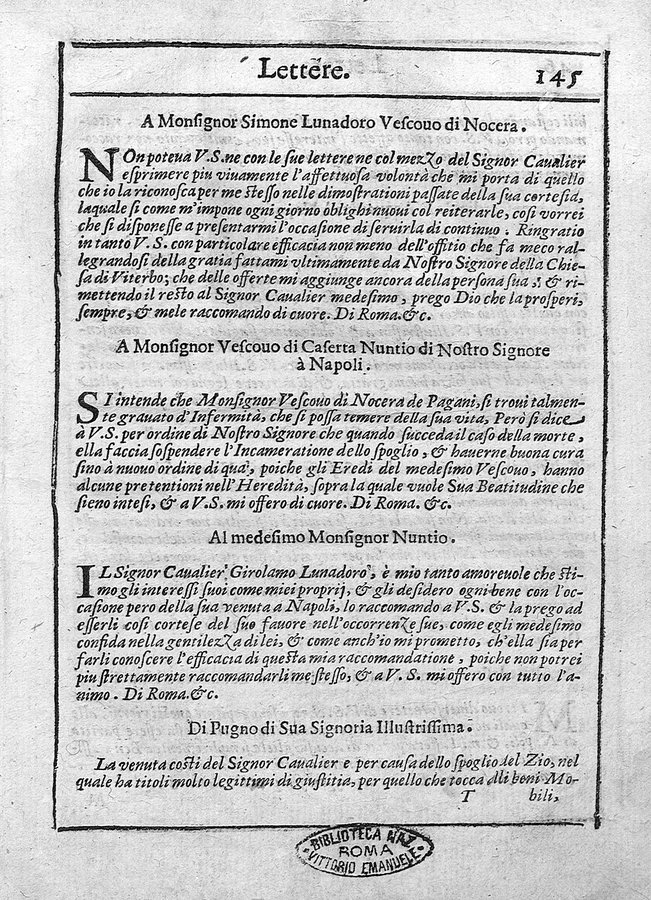 Lettere.
145
A Monsignor Simone Lunadoro Vescouo di Nocera.
NOn poteua V.S. ne con le sue lettere ne col mezzo del Signor Caualier
esprimere piu viuamente l'affettuosa volontà che mi porta di quello
che io la riconosca per me stesso nelle dimostrationi passate della sua cortesia,
laquale si come m'impone ogni giorno oblighi nuoui col reiterarle, così vorrei
che si disponesse a presentarmi l'occasione di seruirla di continuo. Ringratio
in tanto V. S. con particolare efficacia non meno dell'offitio che fa meco ral-
legrandosi della gratia fattami vltimamente da Nostro Signore della Chie-
sa di Viterbo; che delle offerte mi aggiunge ancora della persona sua; & ri-
mettendo il resto al Signor Caualier medesimo, prego Dio che la prosperi,
sempre, & mele raccomando di cuore. Di Roma. &c.
A Monsignor Vescouo di Caserta Nuntio di Nostro Signore
à Napoli.
SI intende che Monsignor Vescouo di Nocera de Pagani, si troui talmen-
te grauato d'Infermità, che si possa temere della sua vita, Però si dice
à V.S. per ordine di Nostro Signore che quando succeda il caso della morte,
ella faccia sospendere l'Incameratione dello spoglio, & hauerne buona cura
sino à nuouo ordine di quà, poiche gli Eredi del medesimo Vescouo, hanno
alcune pretentioni nell'Heredità, sopra la quale vuole Sua Beatitudine che
sieno intesi, & a V.S. mi offero di cuore. Di Roma. &c.
Al medesimo Monsignor Nuntio.
IL Signor Caualier Girolamo Lunadoro, è mio tanto amoreuole che sti-
mo gli interessi suoi come miei proprij, & gli desidero ogni bene con l'oc-
casione pero della sua venuta a Napoli, lo raccomando a V.S. & la prego ad
esserli così cortese del suo fauore nell'occorrenze sue, come egli medesimo
confida nella gentilezza di lei, & come anch'io mi prometto, ch'ella sia per
farli conoscere l'efficacia di questa mia raccomandatione, poiche non potrei
piu strettamente raccomandarli me stesso, & a V. S. mi offero con tutto l'a-
nimo. Di Roma. &c.
Di Pugno di Sua Signoria Illustrissima.
La venuta costì del Signor Caualier e per causa dello spoglio del Zio, nel
quale ha titoli molto legittimi di giustitia, per quello che tocca alli beni Mo-
T bili,
BIBLIOTECA NAZ.
ROMA
VITTORIO EMANUELE